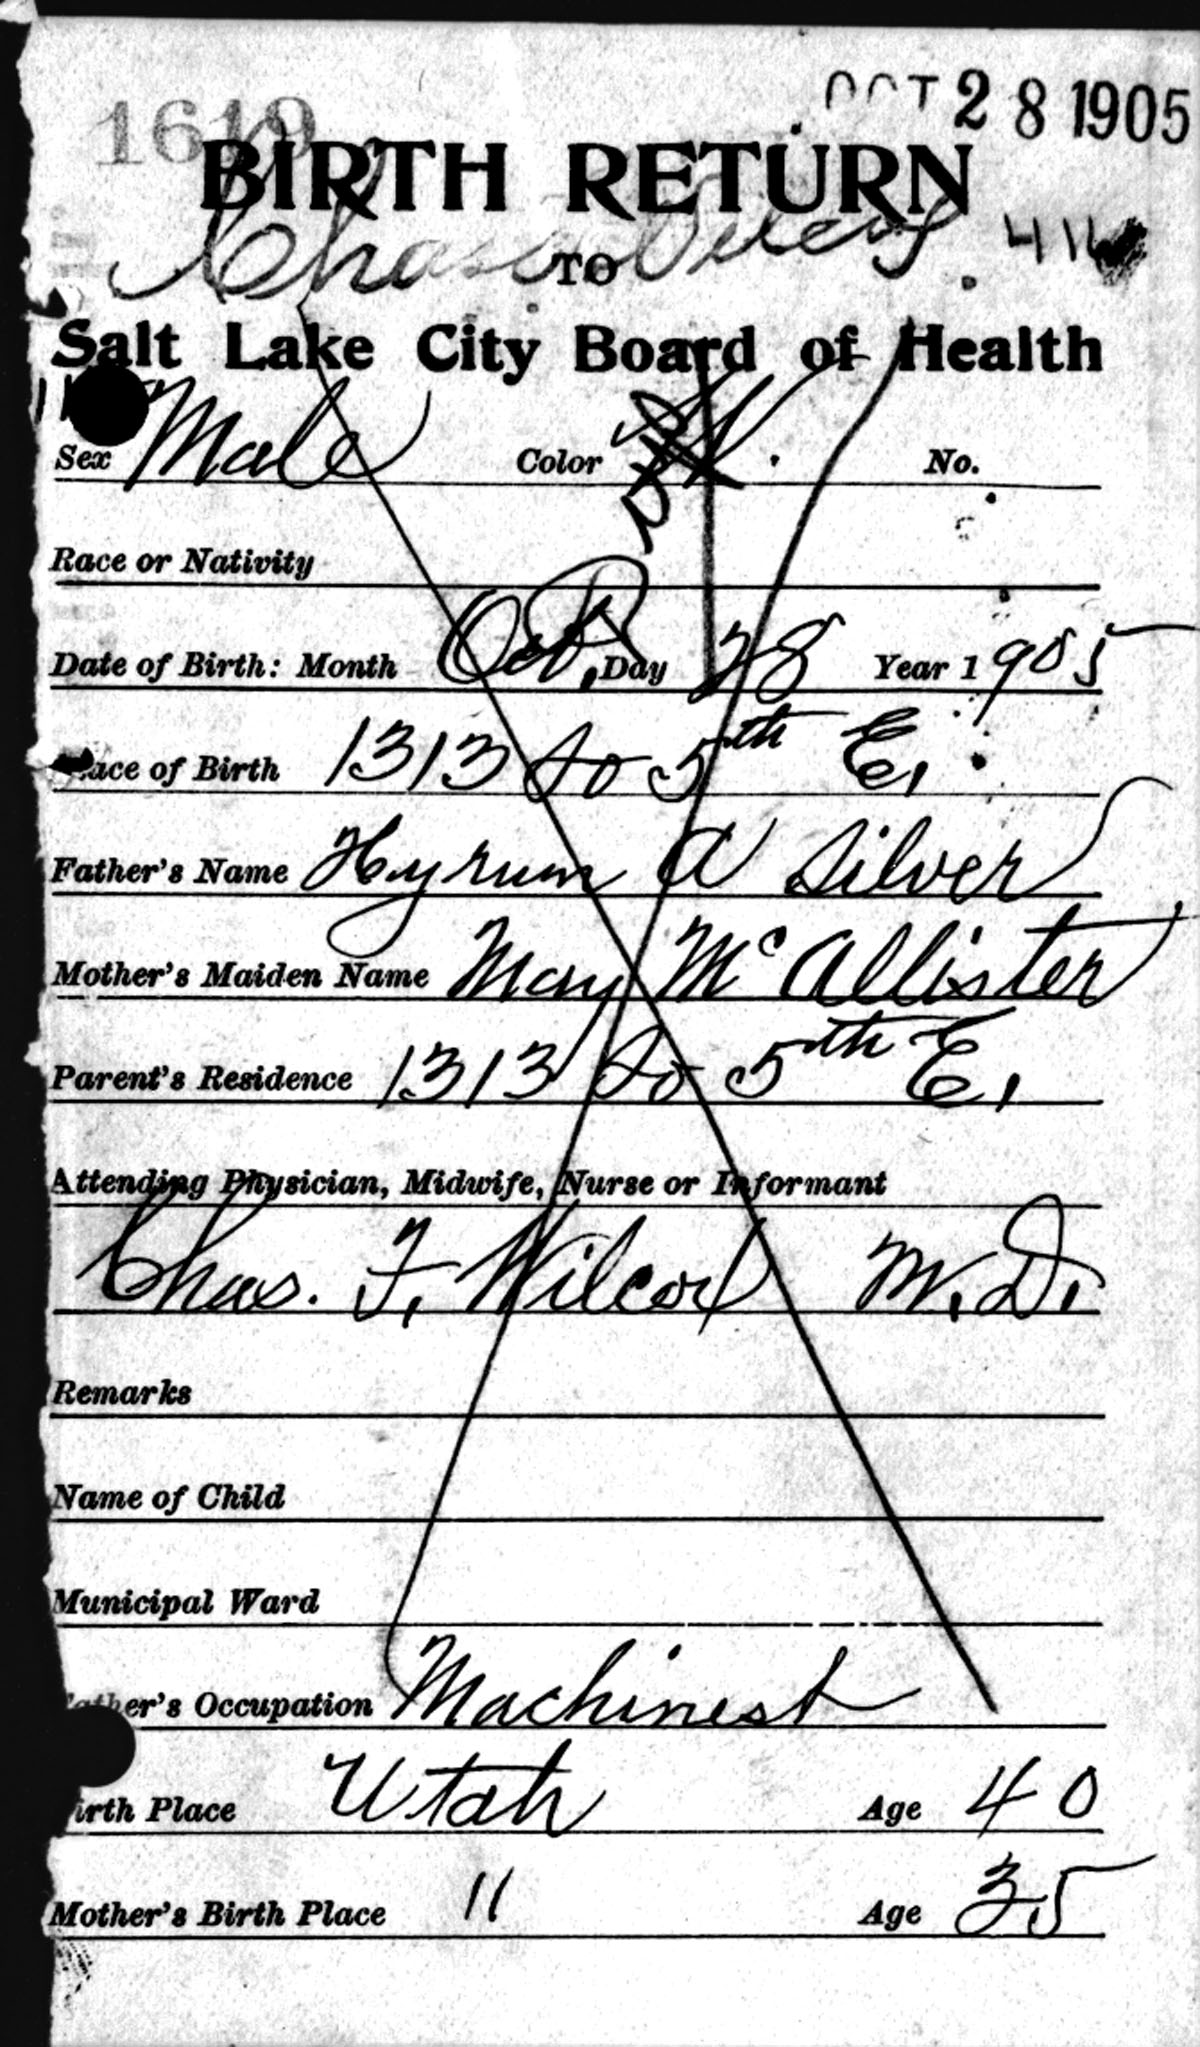 OCT 28 1905
1619
BIRTH RETURN
TO
Salt Lake City Board of Health
Sex Male Color W. No.
Race or Nativity
Date of Birth: Month Oct. Day 28 Year 1905
Place of Birth 1313 So 5th E.
Father's Name Hyrum A Silver
Mother's Maiden Name May McAllister
Parent's Residence 1313 So 5th E.
Attending Physician, Midwife, Nurse or Informant
Chas. F. Wilcox M.D.
Remarks
Name of Child
Municipal Ward
Father's Occupation Machinest
Birth Place Utah Age 40
Mother's Birth Place " Age 35